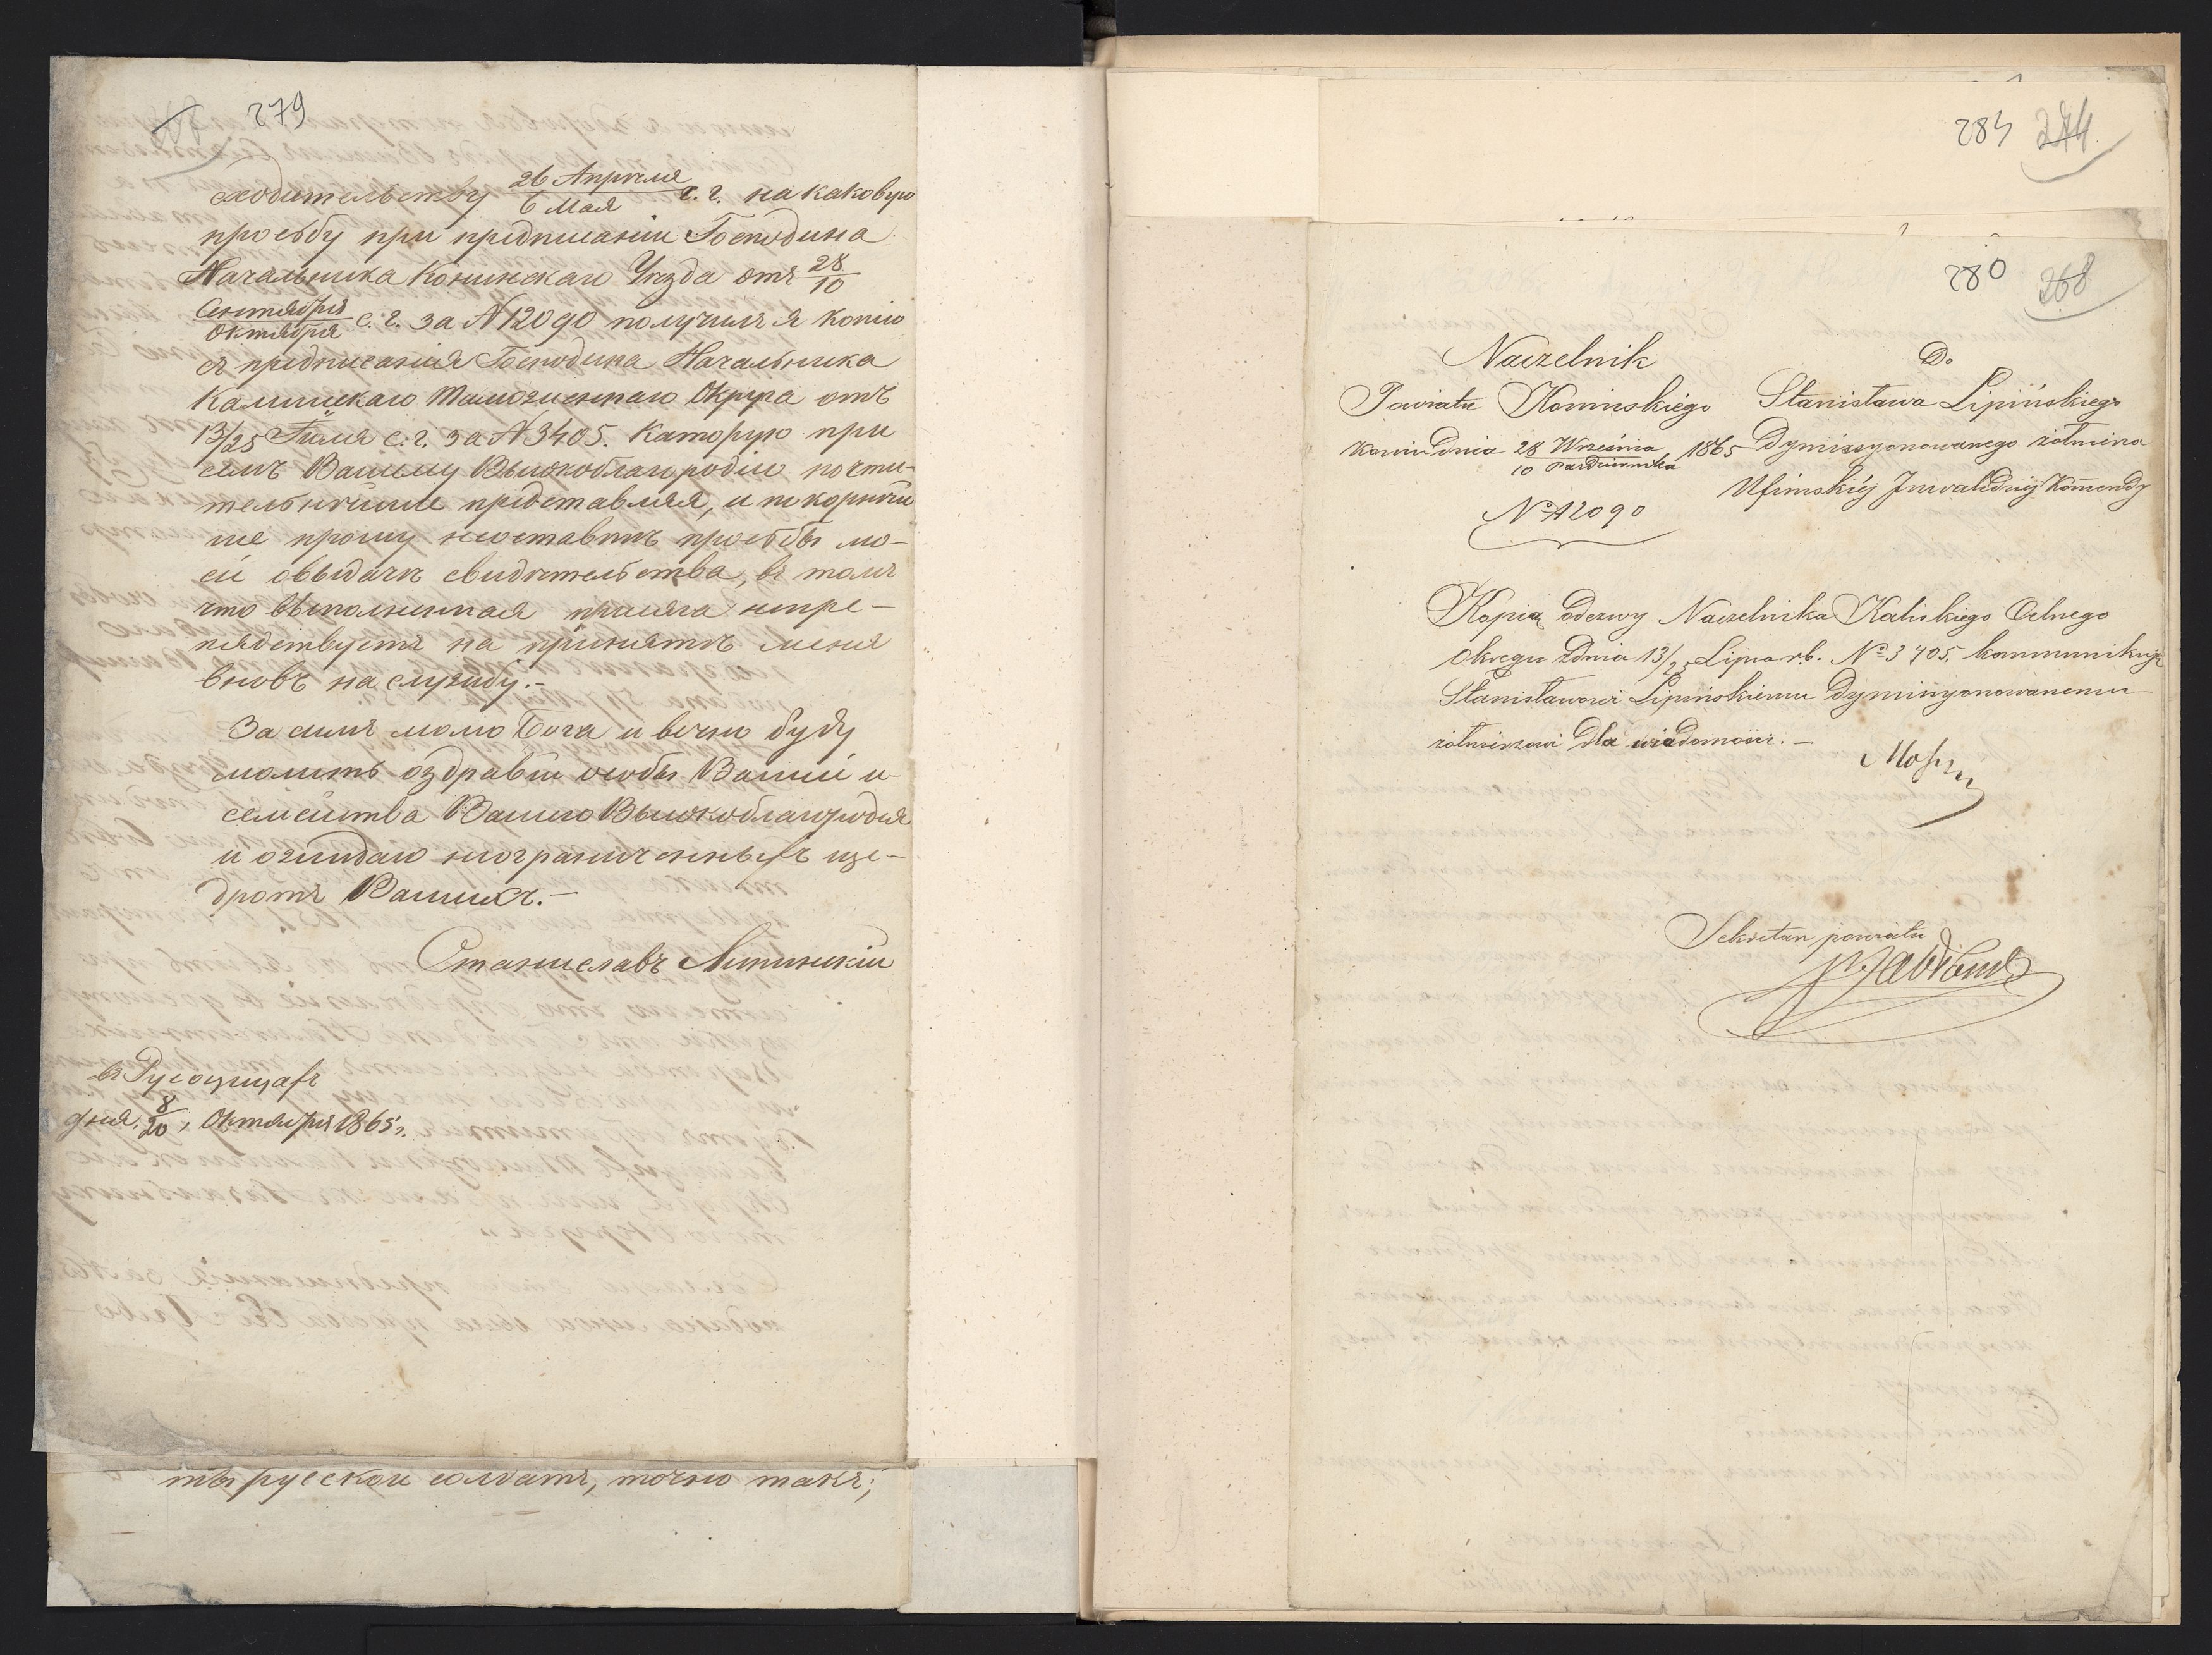 279
сходительству 26 Апреля / 6 Мая с. г. на каковую
просьбу при предписании Господина
Начальника Конинскаго Уезда отъ 28/10
Сентября/Октября с. г. за № 12090 получилъ я копию
съ предписания Господина Начальника
Калишскаго Таможеннаго Округа отъ
13/25 Июля с. г. за № 3405. Которую при
семъ Вашему Высокоблагородию почти-
тельнейше представляя, и покорней
ше прошу неоставить просьбы мо-
ей овыдаче свидетельства, въ томъ
что выполненная присяга непре-
пядствуетъ на принятъ меня
вновь на службу.-
За симъ молю Бога и вечно буду
молить оздравии особы Вашей и-
семейства Вашего Высокоблагородия
и ожидаю неограниченныхъ ще-
дротъ Вашихъ.-
Станиславъ Липинский
въ Русоцицахъ
дня 8/20, Октября 1865 г.
ты русской солдатъ, точно такъ;
284 274.
280 268
Naczelnik
Powiatu Konińskiego
Konin Dnia 28 Września / 10 Października 1865
№ 12090
Do
Stanisława Lipińskiego
Dymissyonowanego żołnierza
Ufimskiéj Inwalidnéj Komendy
Kopią odezwy Naczelnika Kaliskiego Celnego
Okręgu z dnia 13/25 Lipca r.b. № 3405. kommunikuje
Stanisławowi Lipińskiemu Dymissyonowanemu
żołnierzowi dla wiadomości.-
Sekretarz powiatu